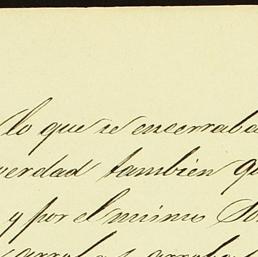 lo que se encerraba
verdad tambien qu
y por el mismo So